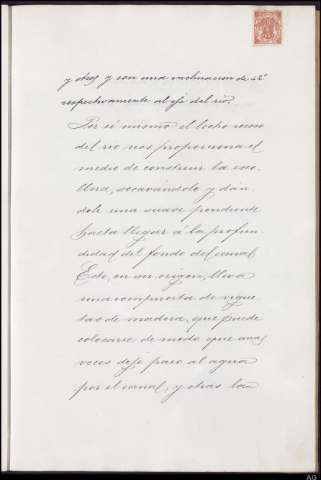 y otros y con una inclinacion de 42°
respectivamente al eje del rio.
Por si mismo el lecho rocoso
del rio nos proporciona el
medio de construir la esco-
llera, socavándolo y dán-
dole una suave pendiente
hasta llegar á la profun-
didad del fondo del canal
Este, en su origen, lleva
una compuerta de vigue-
tas de madera, que puede
colocarse de modo que unas
veces deje paso al agua
por el canal, y otras la